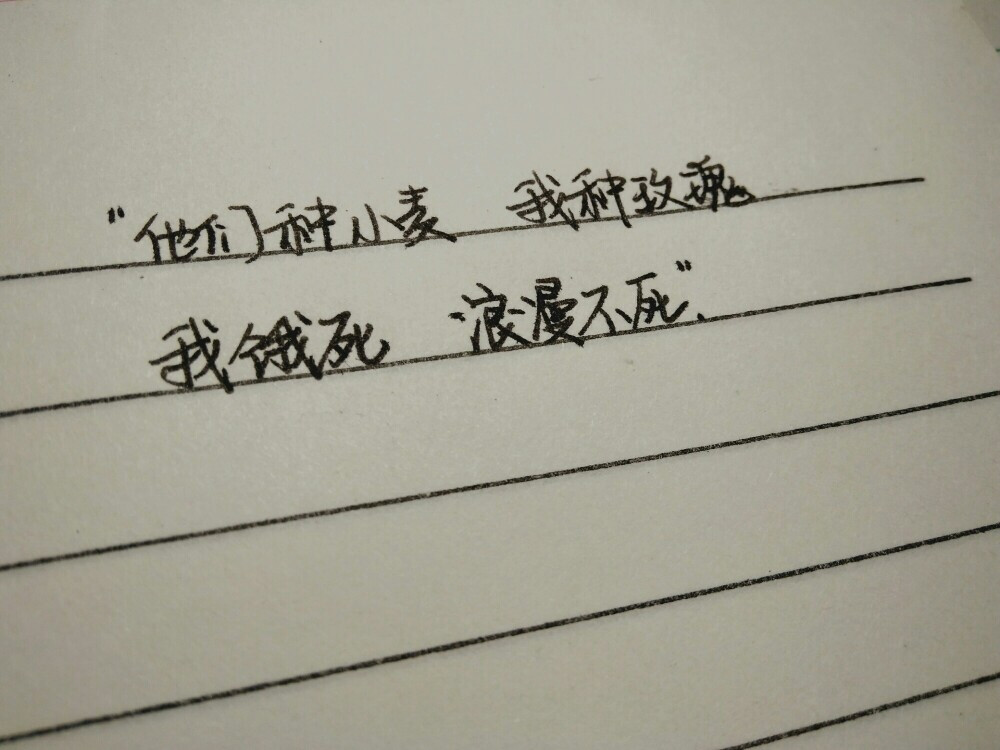 “他们种小麦 我种玫瑰
我饿死 浪漫不死”.